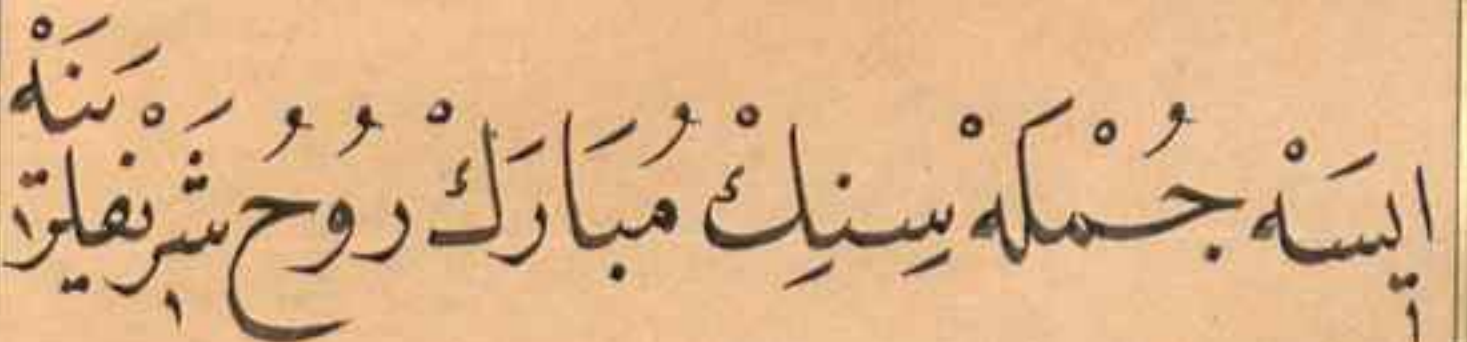 ايسَهْ جُمْلَهْ سِنِكْ مُبَارَكْ رُوُحِ شَرْيفلرينَهْ